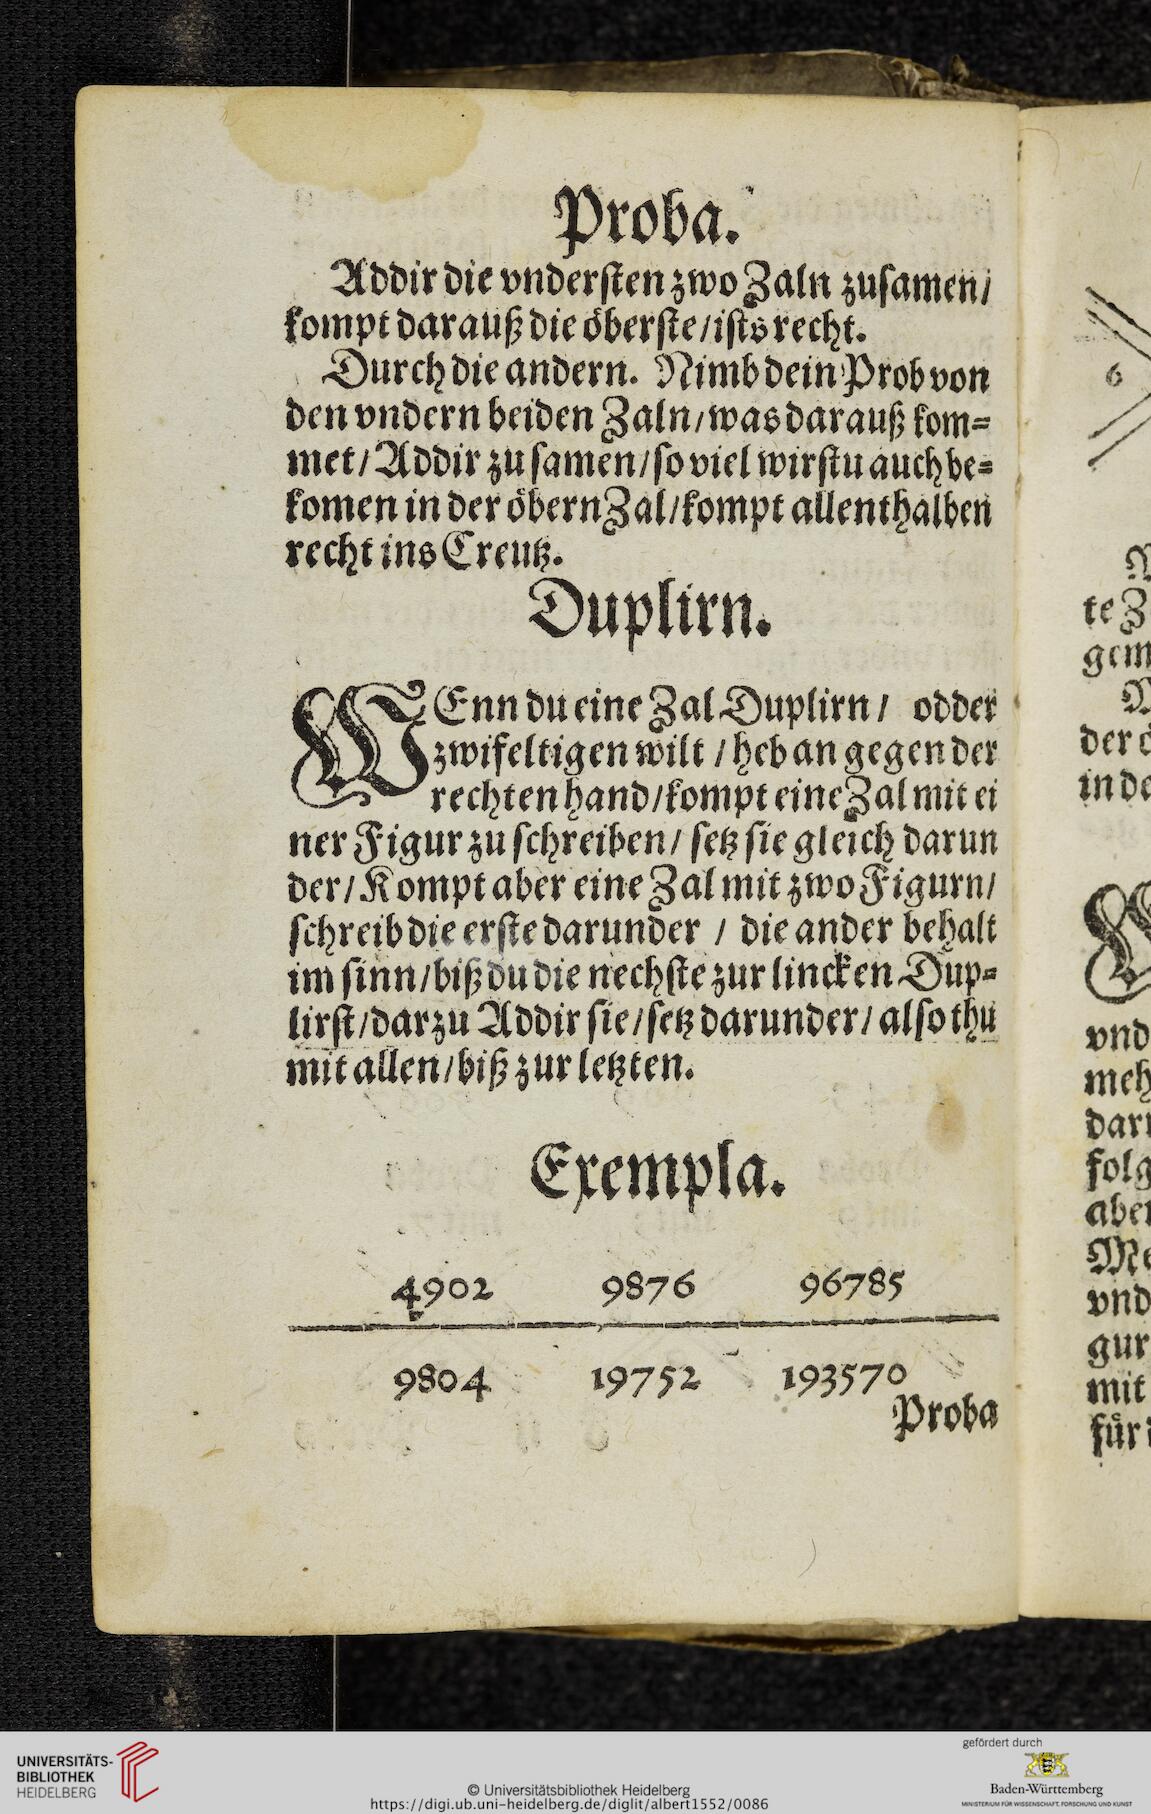 Proba.
Addir die vndersten zwo Zaln zusamen/
kompt darauß die öberste/ists recht.
Durch die andern. Nimb dein Prob von
den vndern beiden Zaln/was darauß kom=
met/Addir zusamen/so viel wirstu auch be=
komen in der öbern Zal/kompt allenthalben
recht ins Creutz.
Duplirn.
WEnn du eine Zal Duplirn/ odder
zwifeltigen wilt/heb an gegen der
rechten hand/kompt eine Zal mit ei
ner Figur zu schreiben/setz sie gleich darun
der/Kompt aber eine Zal mit zwo Figurn/
schreib die erste darunder/die ander behalt
im sinn/biß du die nechste zur lincken Dup=
lirst/darzu Addir sie/setz darunder/also thu
mit allen/biß zur letzten.
Exempla.
4902 9876 96785
9804 19752 193570
Proba
6
te Z
gem
in de
vnd
meh
folg
vnd
gur
mit
für
UNIVERSITÄTS-
BIBLIOTHEK
HEIDELBERG
© Universitätsbibliothek Heidelberg
https://digi.ub.uni-heidelberg.de/diglit/albert1552/0086
gefördert durch
Baden-Württemberg
MINISTERIUM FÜR WISSENSCHAFT, FORSCHUNG UND KUNST